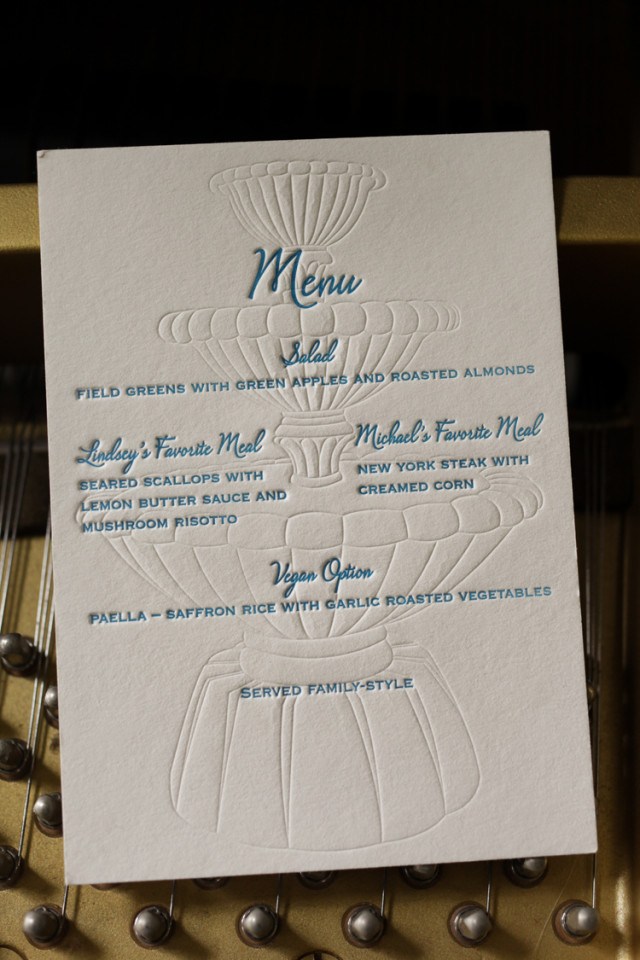 Menu
Salad
FIELD GREENS WITH GREEN APPLES AND ROASTED ALMONDS
Lindsey's Favorite Meal
SEARED SCALLOPS WITH
LEMON BUTTER SAUCE AND
MUSHROOM RISOTTO
Michael's Favorite Meal
NEW YORK STEAK WITH
CREAMED CORN
Vegan Option
PAELLA – SAFFRON RICE WITH GARLIC ROASTED VEGETABLES
SERVED FAMILY-STYLE